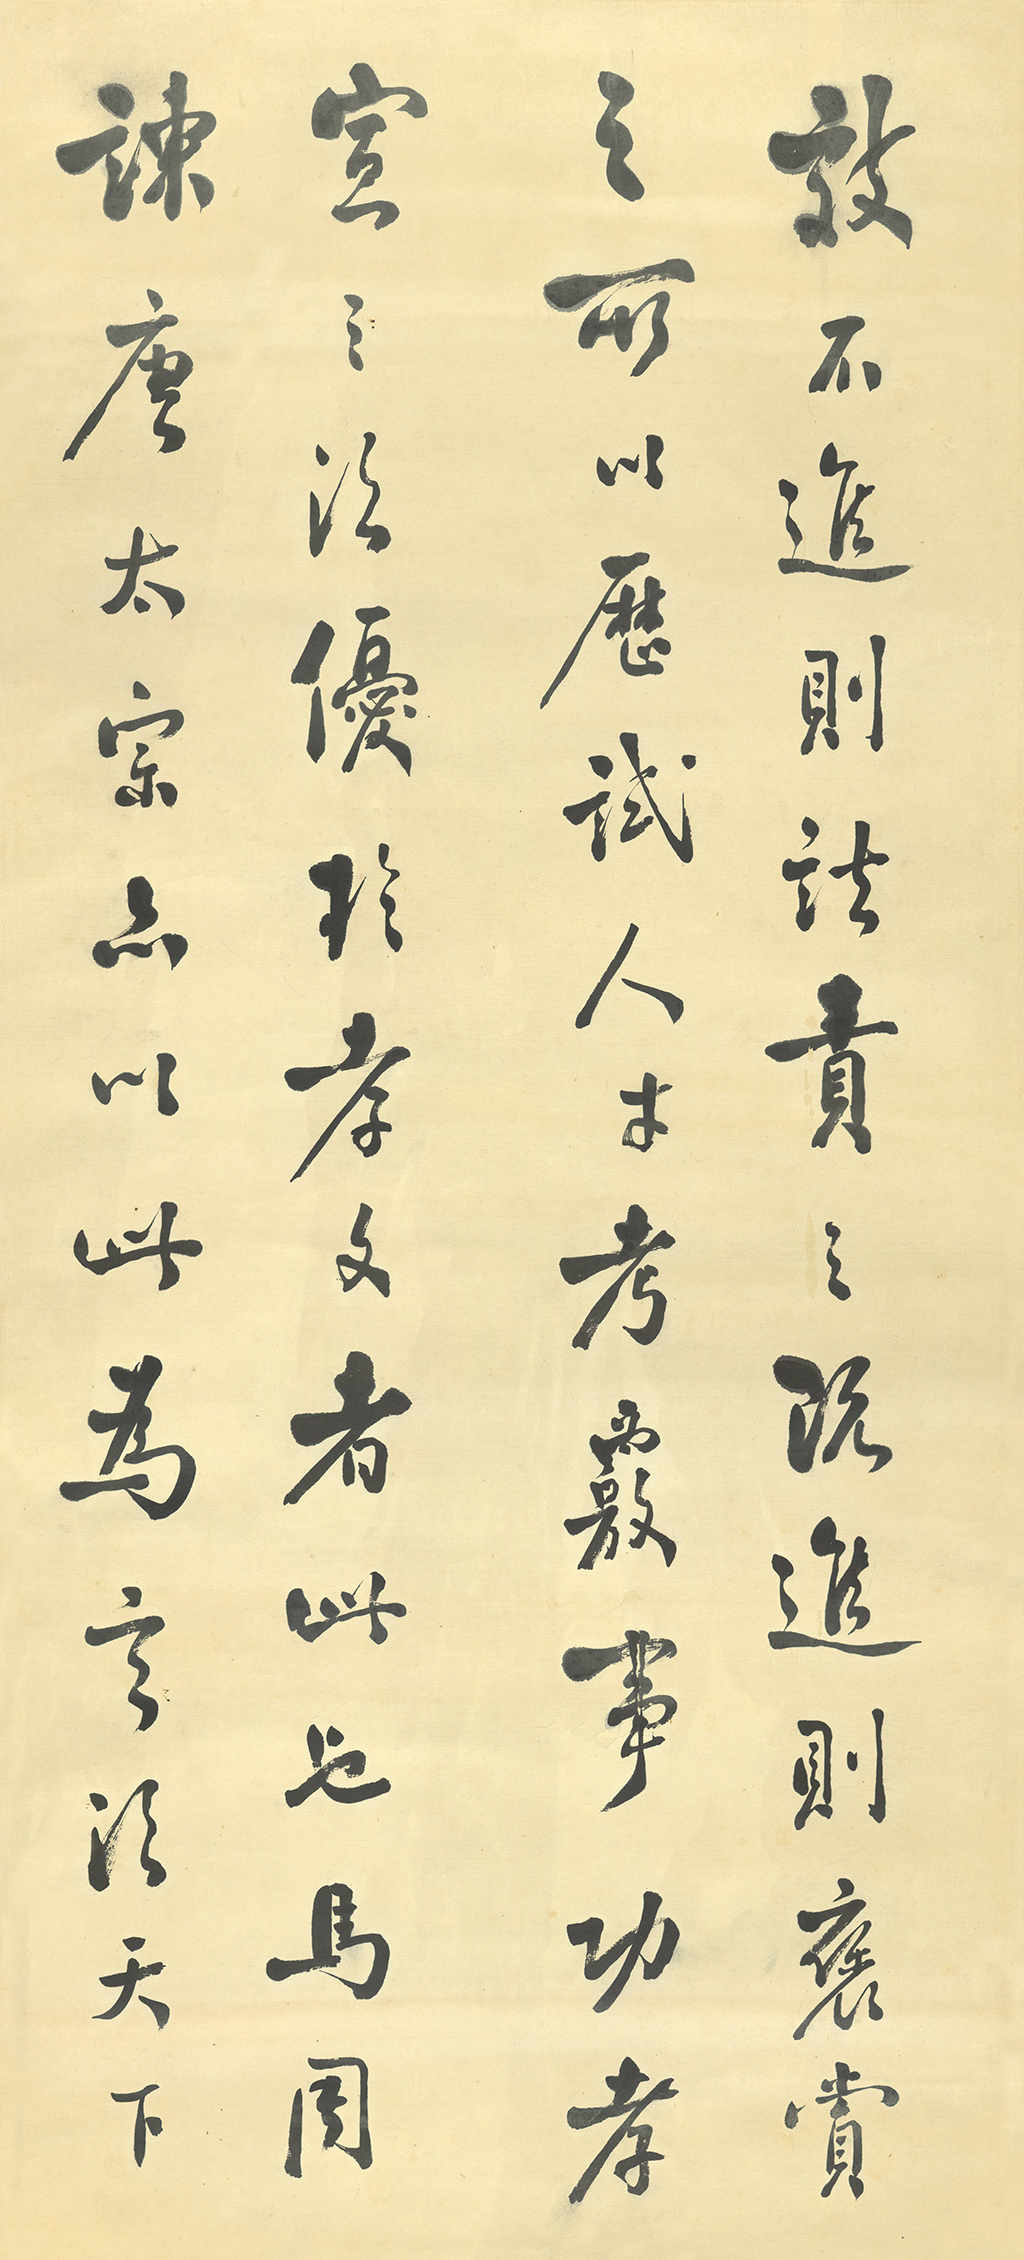 效不進則詰責之既進則褒賞
之所以歷試人才考覈事功孝
宣之治優於孝文者此也馬周
諫唐太宗亦以此為言治天下